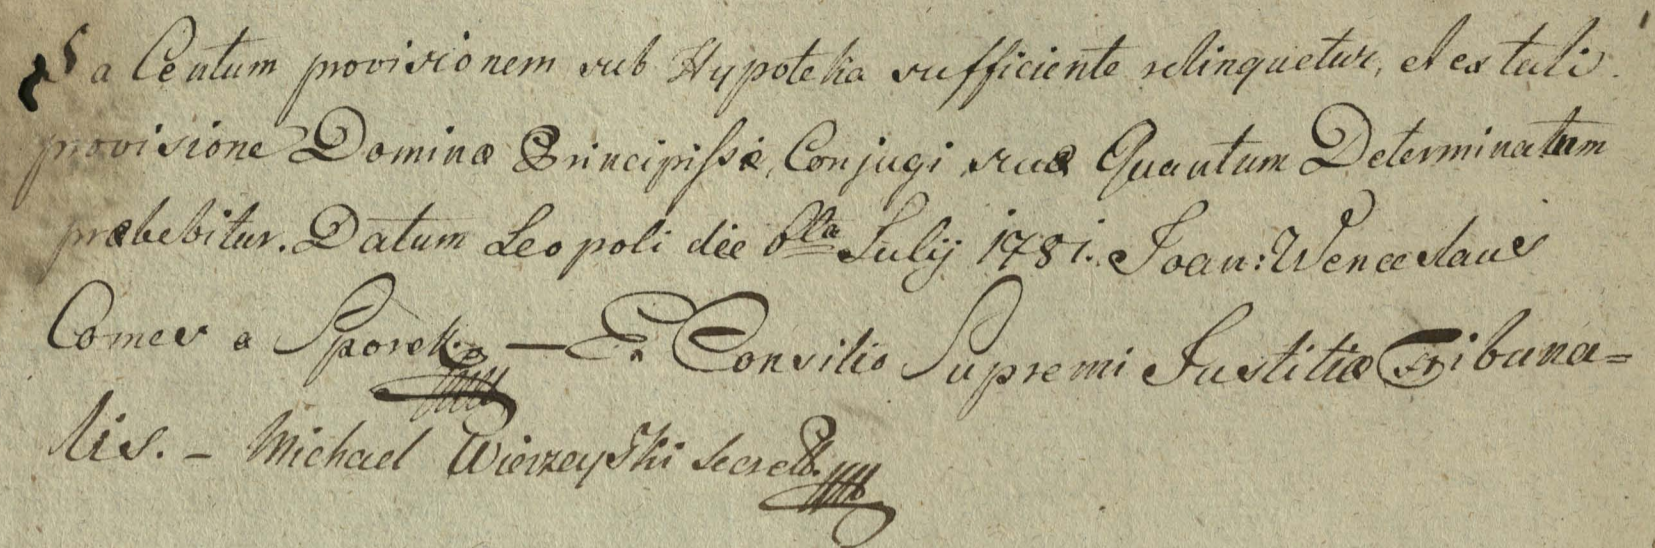 5 a Centum provisionem sub Hypoteka sufficiente relinquetur, et ex tali
provisione Dominæ Principissæ, Conjugi suæ Quantum Determinatum
præbebitur. Datum Leopoli die 6ta Julij 1781. Joan: Wenceslaus
Comes a Sporck — Ex Consilio Supremi Justitiæ Tribuna=
lis. – Michael Secret.